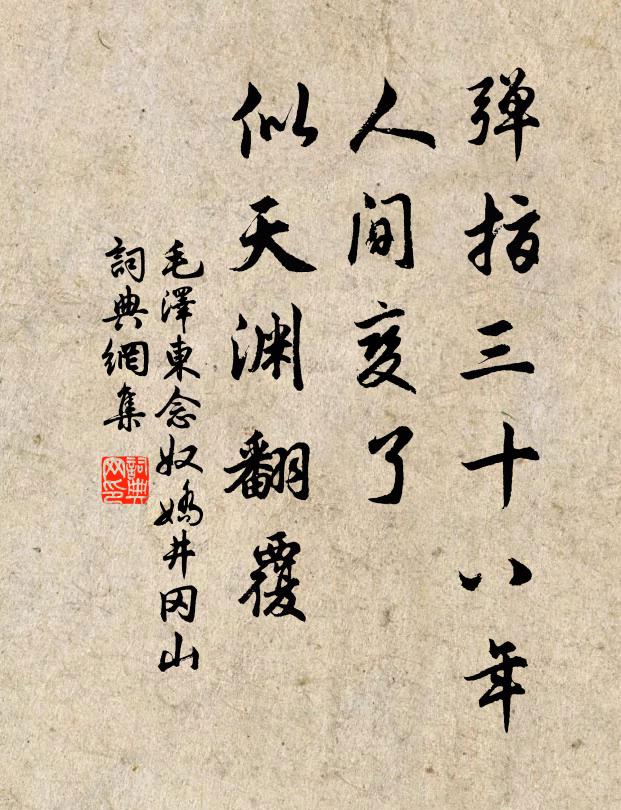 弹指三十八年
人间变了
似天渊翻覆
毛澤東念奴嬌井冈山
詞典網集
詞典
网印